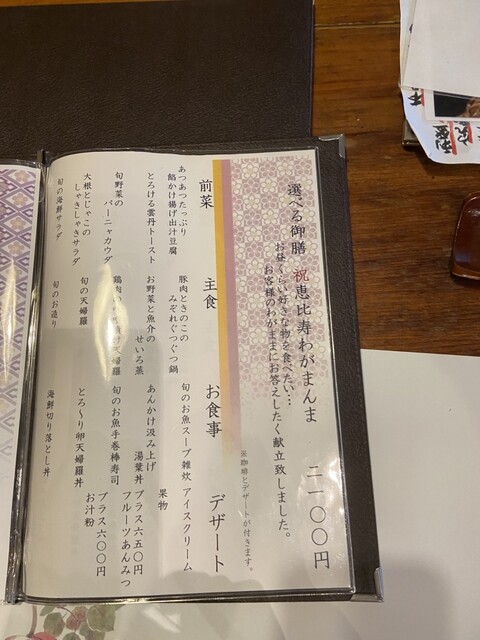 選べる御膳 祝恵比寿わがまんま 二一〇〇円
お昼くらい好きな物を食べたい…
お客様のわがままにお答えしたく献立致しました。
※珈琲とデザートが付きます。
前菜
あつあつたっぷり
餡かけ揚げ出汁豆腐
とろける雲丹トースト
旬野菜の
バーニャカウダ
大根とじゃこの
しゃきしゃきサラダ
旬の海鮮サラダ
主食
豚肉ときのこの
みぞれぐつぐつ鍋
お野菜と魚介の
せいろ蒸
鶏肉の
天婦羅
旬の天婦羅
旬のお造り
お食事
旬のお魚スープ雑炊
あんかけ汲み上げ
湯葉丼
旬のお魚手巻棒寿司
とろ～り卵天婦羅丼
海鮮切り落とし丼
デザート
アイスクリーム
果物
プラス六五〇円
フルーツあんみつ
プラス六〇〇円
お汁粉